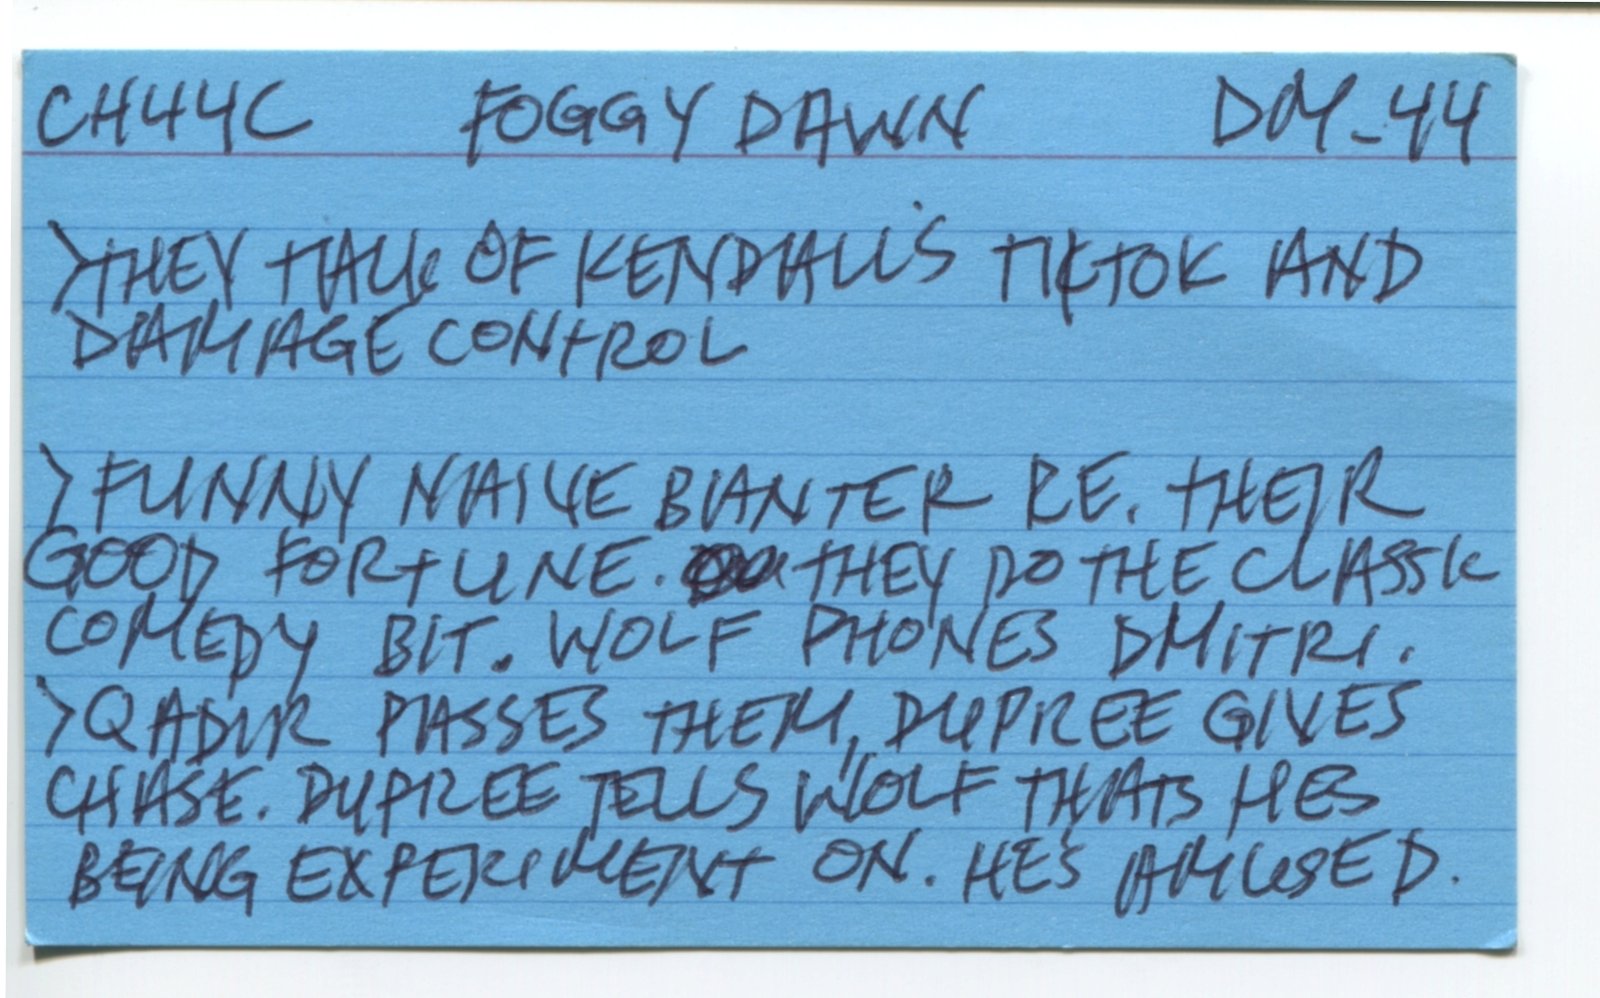 CH44C FOGGY DAWN DM-44
>THEY TALK OF KENDALL'S TIKTOK AND
DAMAGE CONTROL
>FUNNY NAIVE BANTER RE. THEIR
GOOD FORTUNE. THEY DO THE CLASSIC
COMEDY BIT. WOLF PHONES DMITRI.
>QADIR PASSES THEM, DUPREE GIVES
CHASE. DUPREE TELLS WOLF THATS HES
BEING EXPERIMENT ON. HE'S AMUSED.